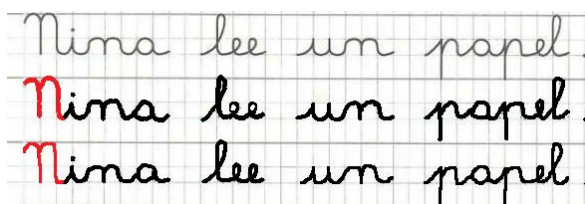 Nina lee un papel.
Nina lee un papel.
Nina lee un papel.